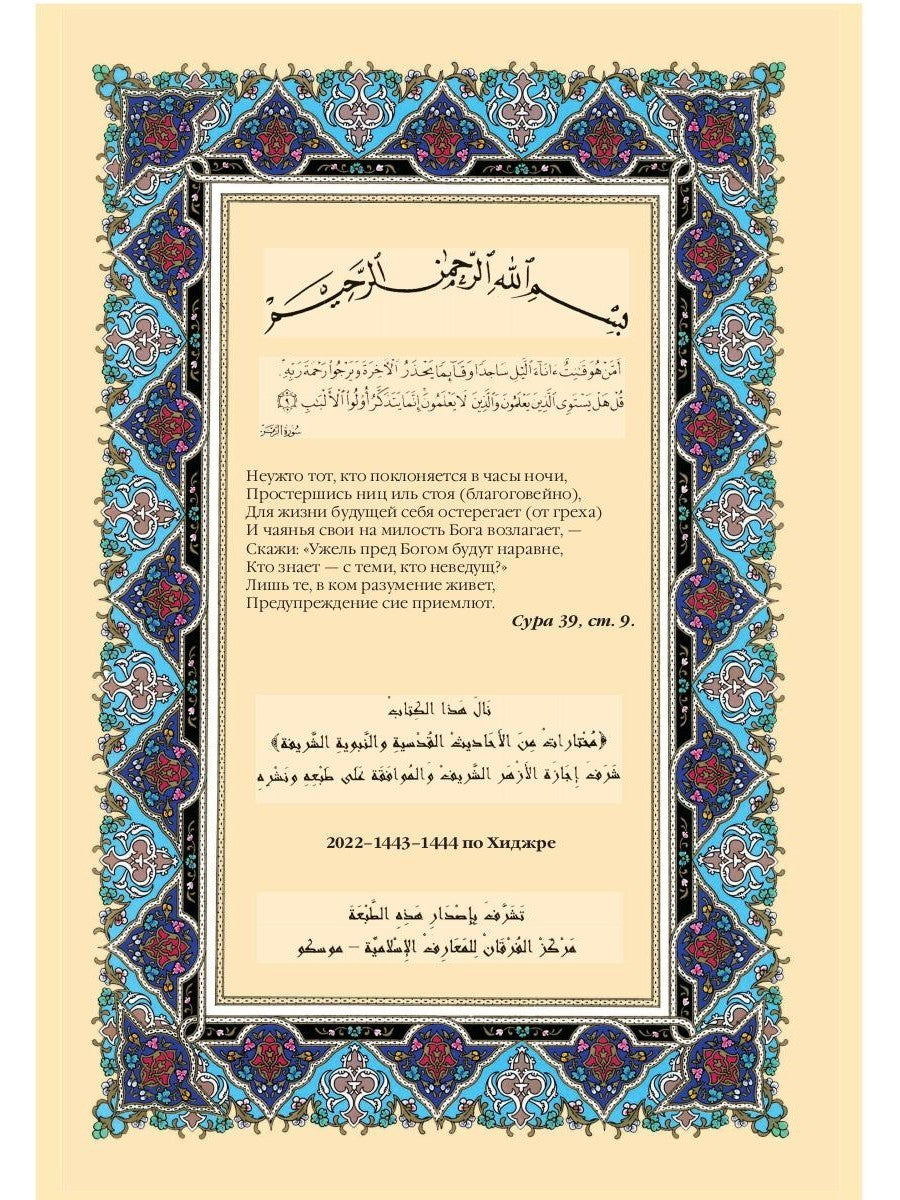 بِسْمِ ٱللَّهِ ٱلرَّحْمَٰنِ ٱلرَّحِيمِ
أَمَّنْ هُوَ قَٰنِتٌ ءَانَآءَ ٱلَّيْلِ سَاجِدًا وَقَآئِمًا يَحْذَرُ ٱلْءَاخِرَةَ وَيَرْجُوا۟ رَحْمَةَ رَبِّهِۦ
قُلْ هَلْ يَسْتَوِى ٱلَّذِينَ يَعْلَمُونَ وَٱلَّذِينَ لَا يَعْلَمُونَ إِنَّمَا يَتَذَكَّرُ أُو۟لُوا۟ ٱلْأَلْبَٰبِ ﴿٩﴾
سُورَةُ الزُّمَر
Неужто тот, кто поклоняется в часы ночи,
Простершись ниц иль стоя (благоговейно),
Для жизни будущей себя остерегает (от греха)
И чаянья свои на милость Бога возлагает, —
Скажи: «Ужель пред Богом будут наравне,
Кто знает — с теми, кто неведущ?»
Лишь те, в ком разумение живет,
Предупреждение сие приемлют.
Сура 39, ст. 9.
نَالَ هَذَا الكِتَابْ
﴿مُخْتَارَاتْ مِنَ الأَحَادِيثْ القُدْسِيةِ والنَّبويةِ الشَّرِيفَة﴾
شَرَفَ إجَازَة الأَزهَر الشَّريفْ وَالمُوافَقَة عَلَى طَبْعِهِ ونَشْرِهِ
2022–1443–1444 по Хиджре
تَشَرَّفَ بِإصْدَارِ هَذِهِ الطَّبْعَةَ
مَرْكَزْ الفُرْقَانْ لِلمَعَارِفْ الإِسْلَامِيَّة – موسكو